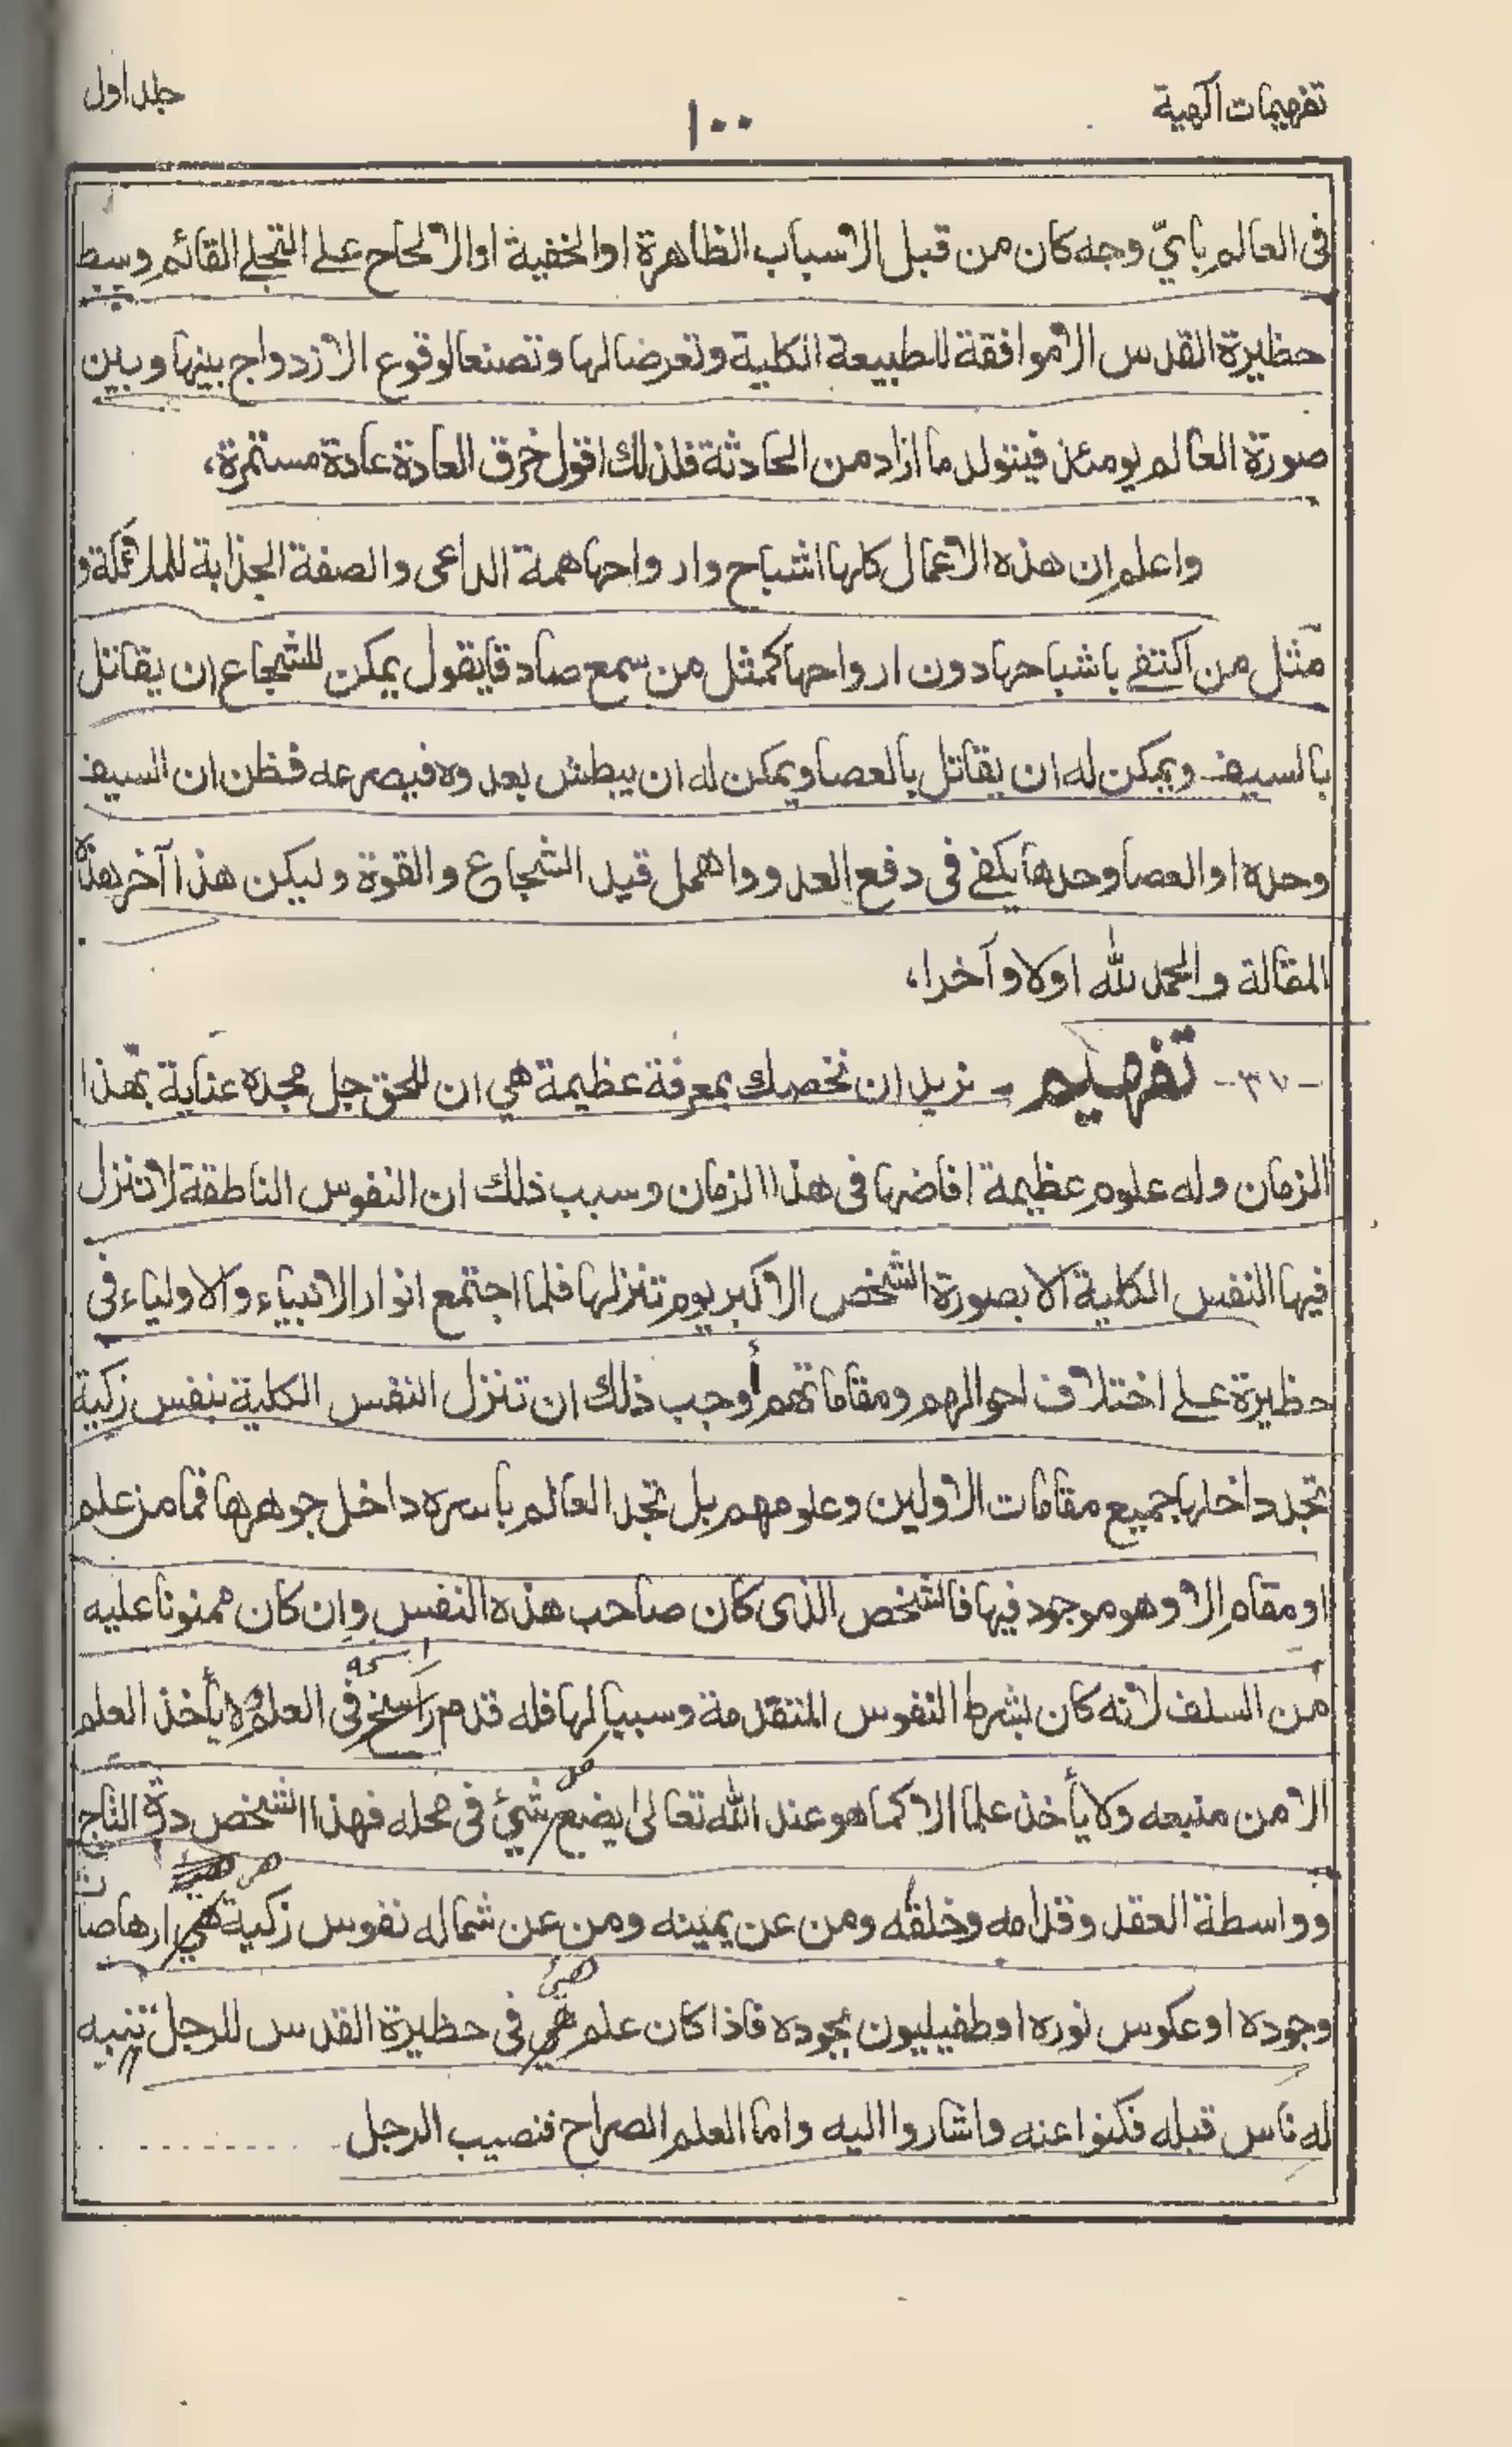 تفهيمات الٰهية
١٠٠
جلد اول
فى العالم بايّ وجه كان من قبل الاسباب الظاهرة او الخفية او الالحاح على التجلى القائم وسط
حظيرة القدس الاموافقة للطبيعة الكلية وتعرضا لها وتصنعا لوقوع الازدواج بينها وبين
صورة العالم يومئذ فيتولد ما اراد من الحادثة فلذلك اقول خرق العادة عادة مستمرة،
واعلم ان هذه الاعمال كلها اشباح وارواحها همة الداعى والصفة الجذابة للملائكة و
مثل من اكتفى باشباحها دون ارواحها كمثل من سمع صادقا يقول يمكن للشجاع ان يقاتل
بالسيف ويمكن له ان يقاتل بالعصا ويمكن له ان يبطش بعدوه فيصرعه فظن ان السيف
وحده او العصا وحدها يكفى فى دفع العدو واهمل قيد الشجاع والقوة وليكن هذا آخر هذه
المقالة والحمد لله اولا وآخرا،
-٣٧- تفهيم - نريد ان نخصك بمعرفة عظيمة هي ان للحق جل مجده عناية بهذا
الزمان وله علوم عظيمة افاضها فى هذا الزمان وسبب ذلك ان النفوس الناطقة لا تنزل
فيها النفس الكلية الا بصورة الشخص الاكبر يوم تنزلها فلما اجتمع انوار الانبياء والاولياء فى
حظيرة على اختلاف احوالهم ومقاماتهم أوجب ذلك ان تنزل النفس الكلية بنفس زكية
تجد داخلها جميع مقامات الاولين وعلومهم بل تجد العالم باسره داخل جوهرها فما من علم
او مقام الا وهو موجود فيها فالشخص الذى كان صاحب هذه النفس وان كان ممنونا عليه
من السلف لانه كان بشرط النفوس المتقدمة وسببا لها فله قدم راسخ فى العلم لا يأخذ العلم
الا من منبعه ولا يأخذ علما الا كما هو عند الله تعالى يضع كل شئ فى محله فهذا الشخص درة التاج
وواسطة العقد وقدامه وخلفه ومن عن يمينه ومن عن شماله نفوس زكية هي ارهاصات
وجوده او عكوس نوره او طفيليون بجوده فاذا كان علم هيئ فى حظيرة القدس للرجل تنبيه
له ناس قبله فكنوا عنه واشاروا اليه واما العلم الصراح فنصيب الرجل